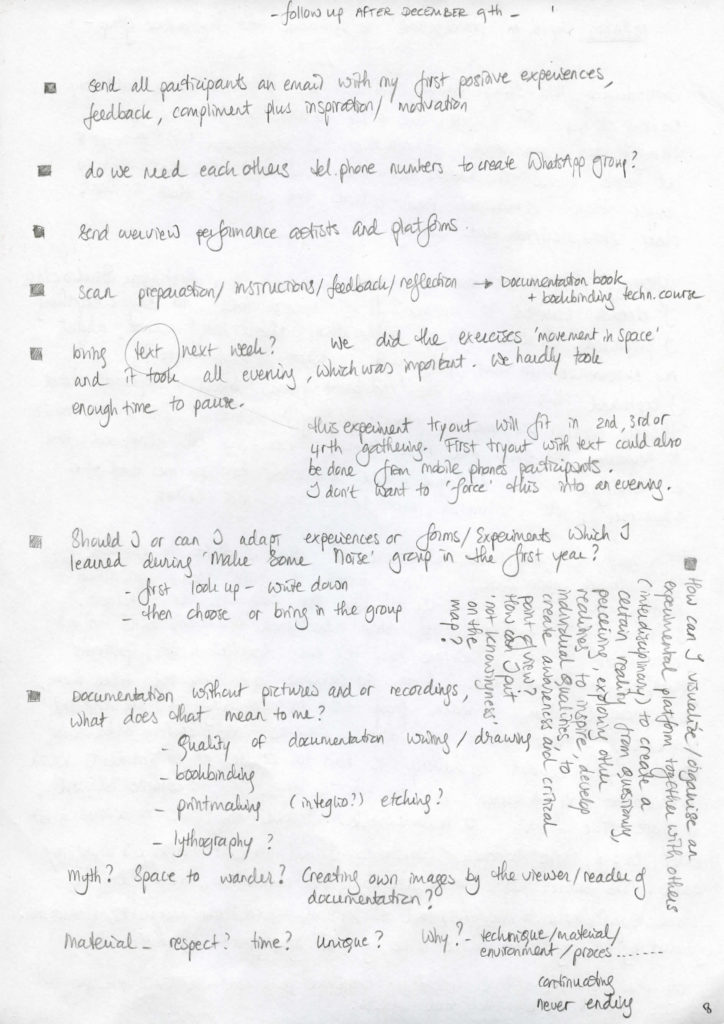 - follow up AFTER DECEMBER 9th -
send all participants an email with my first positive experiences,
feedback, compliment plus inspiration/ motivation
do we need each others tel.phone numbers to create WhatsApp group?
Send overview performance artists and platforms.
scan preparation/ INSTRUCTIONS/ feedback/ reflection → DOCUMENTATION book
+ bookbinding techn. course
bring text next week? We did the exercises 'movement in space'
and it took all evening, which was important. We hardly took
enough time to pause.
this experiment tryout will fit in 2nd, 3rd or
4rth gathering. First tryout with text could also
be done from mobile phones participants.
I don't want to 'force' this into an evening.
Should I or can I adapt experiences or forms/ Experiments which I
learned during 'Make Some Noise' group in the first year?
- first look up - write down
- then choose or bring in the group
How can I visualise/ organise an
experimental platform together with others
(interdisciplinary) to create a
certain reality from questioning,
perceiving, exploring other
realities to inspire, develop
individual qualities, to
create awareness and critical
point of view?
How can I put
'not knowingness'
on the
map?
DOCUMENTATION without pictures and or recordings,
what does that mean to me?
- Quality of documentation writing / drawing
- bookbinding
- printmaking (integlio?) etching?
- lythography ?
Myth? Space to wander? Creating own images by the viewer/reader of
documentation?
Material - respect? time? unique? Why? - technique/material/
environment/proces .......
continuating
never ending
8